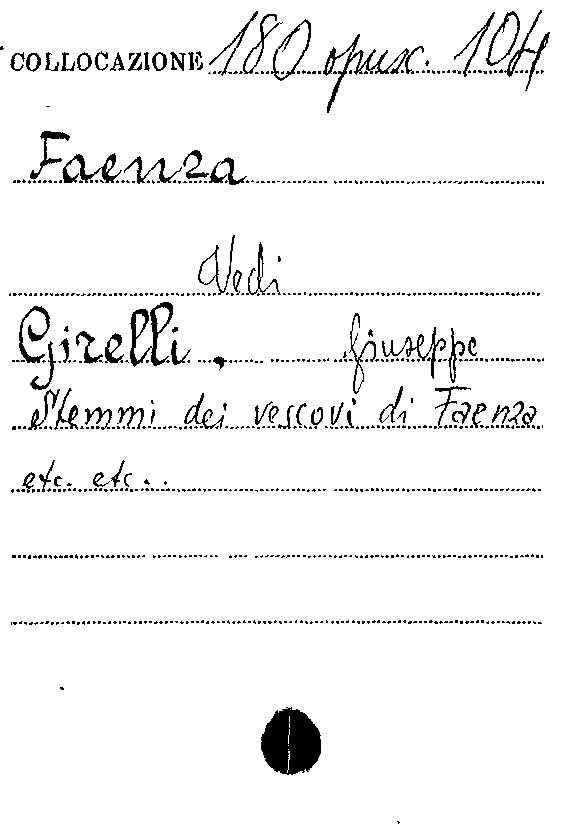 COLLOCAZIONE 180 opusc. 104
Faenza
Vedi
Girelli, Giuseppe
Stemmi dei vescovi di Faenza
etc. etc..